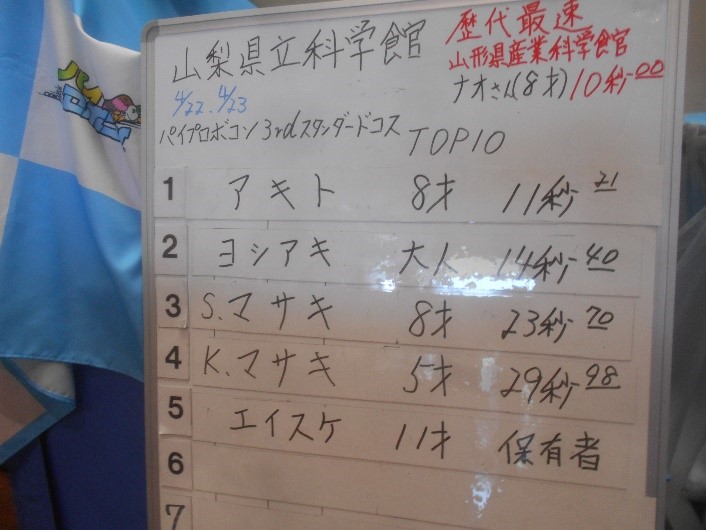 山梨県立科学館
歴代最速
山形県産業科学館
ナオさん(8才)10秒00
4/22. 4/23
パイプロボコン3rdスタンダードコス TOP10
1 アキト 8才 11秒71
2 ヨシアキ 大人 14秒40
3 S.マサキ 8才 23秒70
4 K.マサキ 5才 29秒98
5 エイスケ 11才 保有者
6
7